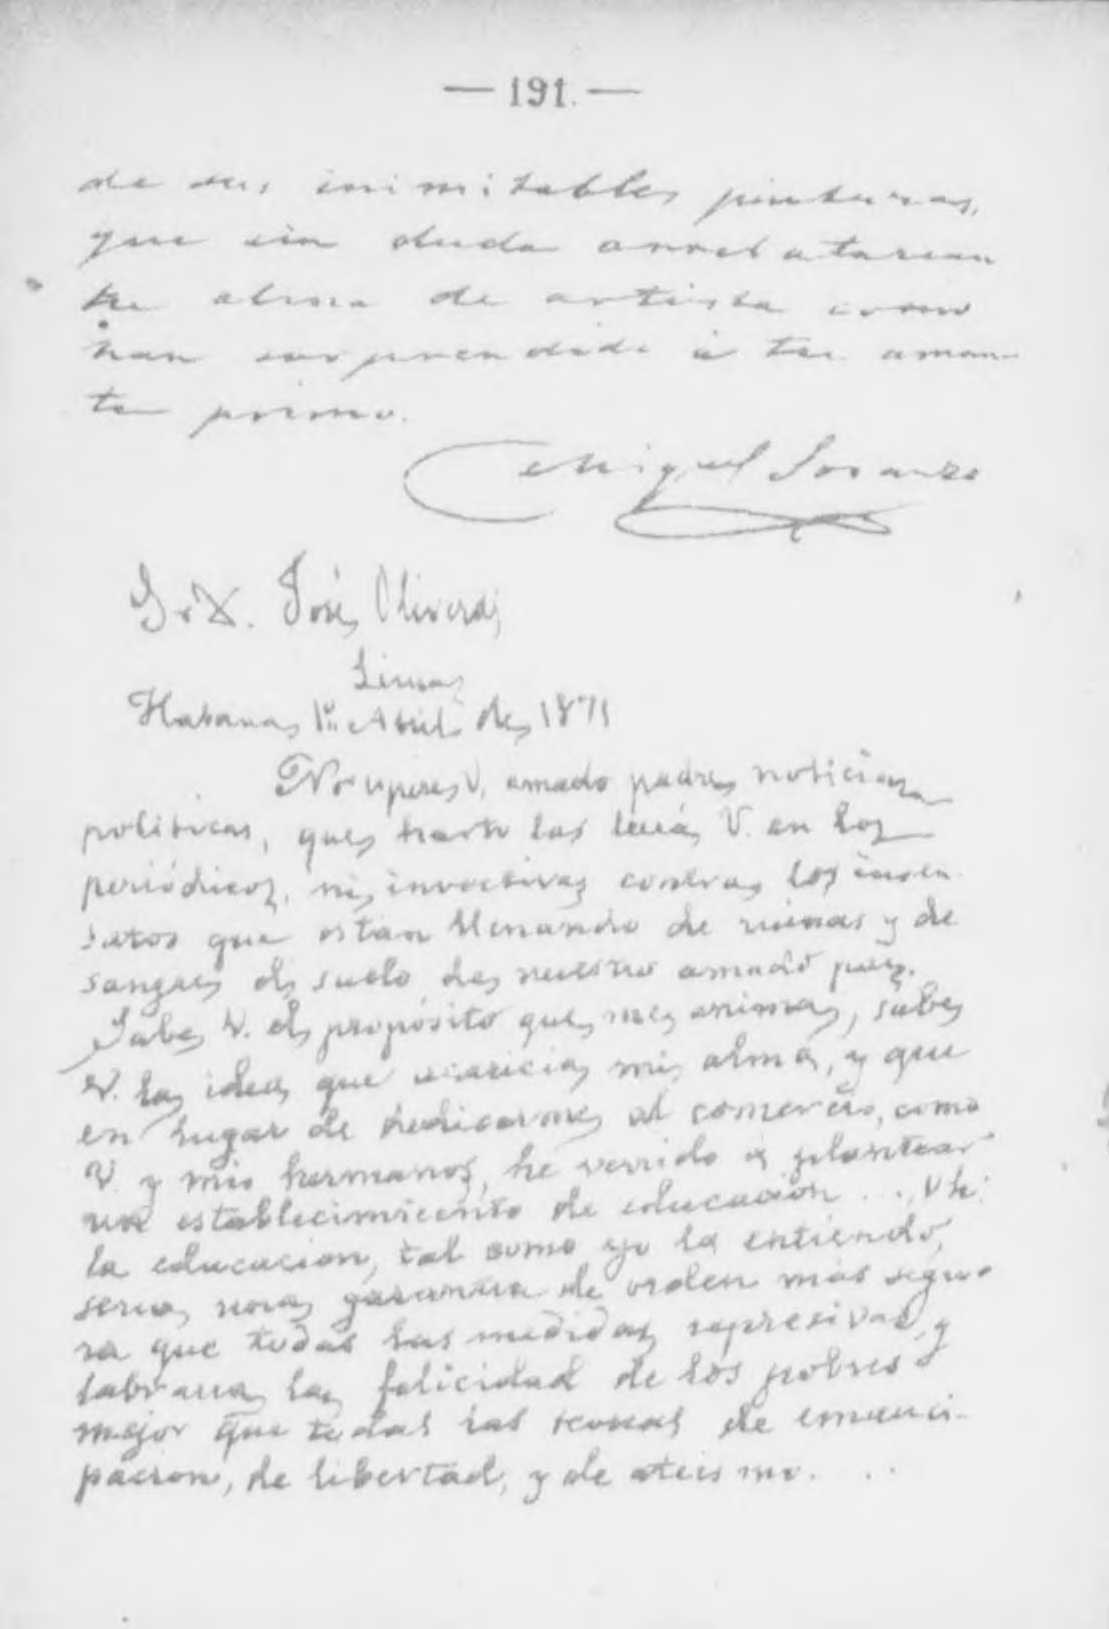 — 191. —
de sus inimitables pinturas,
que sin duda arrebatarian
tu alma de artista como
han sorprendido á tu aman-
te primo.
Miguel
Sr D. José Olivera
Lima
Habana 1º Abril de 1871
No espere V. amado padre noticias
politicas, que harto las leerá V. en los
periódicos, ni invectivas contra los insen
satos que estan llenando de ruinas y de
sangre el suelo de nuestro amado pais.
Sabe V. el propósito que me anima, sabe
V. la idea que acaricia mi alma, y que
en lugar de dedicarme al comercio, como
V. y mis hermanos, he venido á plantear
un establecimiento de educacion ...
la educacion, tal como yo la entiendo,
seria una garantia de orden mas segu-
ra que todas las medidas represivas, y
labraria la felicidad de los pobres
mejor que todas las de emanci-
pacion, de libertad, y de ateismo. . .